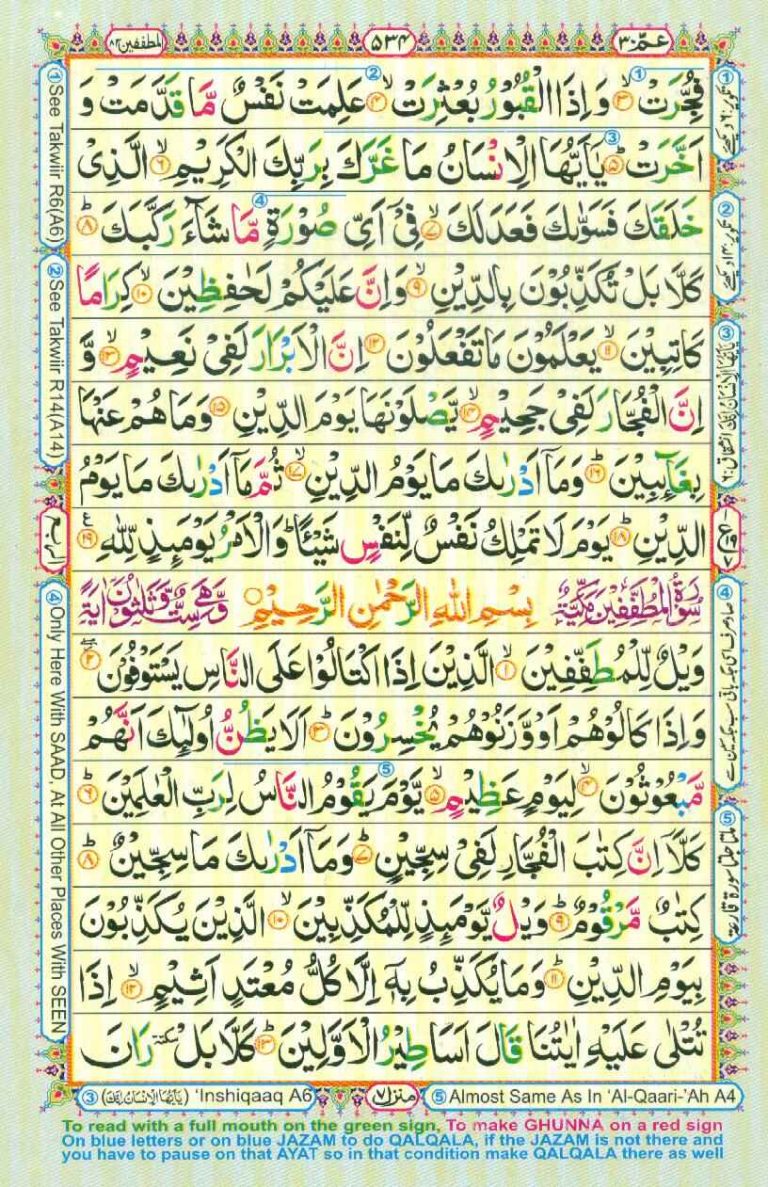 عمّ ٣٠
٥٣٤
المطففين ٨٣
فُجِّرَتْ ۙ﴿۳﴾ وَاِذَا الْقُبُوْرُ بُعْثِرَتْ ۙ﴿۴﴾ عَلِمَتْ نَفْسٌ مَّا قَدَّمَتْ وَ
اَخَّرَتْ ؕ﴿۵﴾ یٰۤاَیُّهَا الْاِنْسَانُ مَا غَرَّكَ بِرَبِّكَ الْكَرِیْمِ ۙ﴿۶﴾ الَّذِیْ
خَلَقَكَ فَسَوّٰىكَ فَعَدَلَكَ ۙ﴿۷﴾ فِیْۤ اَیِّ صُوْرَةٍ مَّا شَآءَ رَكَّبَكَ ؕ﴿۸﴾
كَلَّا بَلْ تُكَذِّبُوْنَ بِالدِّیْنِ ۙ﴿۹﴾ وَاِنَّ عَلَیْكُمْ لَحٰفِظِیْنَ ۙ﴿۱۰﴾ كِرَامًا
كَاتِبِیْنَ ۙ﴿۱۱﴾ یَعْلَمُوْنَ مَا تَفْعَلُوْنَ ﴿۱۲﴾ اِنَّ الْاَبْرَارَ لَفِیْ نَعِیْمٍ ۙ﴿۱۳﴾ وَّ
اِنَّ الْفُجَّارَ لَفِیْ جَحِیْمٍ ۙ﴿۱۴﴾ یَّصْلَوْنَهَا یَوْمَ الدِّیْنِ ﴿۱۵﴾ وَمَا هُمْ عَنْهَا
بِغَآئِبِیْنَ ؕ﴿۱۶﴾ وَمَاۤ اَدْرٰىكَ مَا یَوْمُ الدِّیْنِ ۙ﴿۱۷﴾ ثُمَّ مَاۤ اَدْرٰىكَ مَا یَوْمُ
الدِّیْنِ ؕ﴿۱۸﴾ یَوْمَ لَا تَمْلِكُ نَفْسٌ لِّنَفْسٍ شَیْـًٔا ؕ وَالْاَمْرُ یَوْمَئِذٍ لِّلّٰهِ ﴿۱۹﴾
سُوْرَةُ الْمُطَفِّفِیْنَ مَكِّیَّةٌ بِسْمِ اللّٰهِ الرَّحْمٰنِ الرَّحِیْمِ وَّهِیَ سِتٌّ وَّثَلٰثُوْنَ اٰیَةً
وَیْلٌ لِّلْمُطَفِّفِیْنَ ۙ﴿۱﴾ الَّذِیْنَ اِذَا اكْتَالُوْا عَلَی النَّاسِ یَسْتَوْفُوْنَ ﴿۲﴾
وَاِذَا كَالُوْهُمْ اَوْ وَّزَنُوْهُمْ یُخْسِرُوْنَ ؕ﴿۳﴾ اَلَا یَظُنُّ اُولٰٓئِكَ اَنَّهُمْ
مَّبْعُوْثُوْنَ ۙ﴿۴﴾ لِیَوْمٍ عَظِیْمٍ ۙ﴿۵﴾ یَّوْمَ یَقُوْمُ النَّاسُ لِرَبِّ الْعٰلَمِیْنَ ؕ﴿۶﴾
كَلَّاۤ اِنَّ كِتٰبَ الْفُجَّارِ لَفِیْ سِجِّیْنٍ ؕ﴿۷﴾ وَمَاۤ اَدْرٰىكَ مَا سِجِّیْنٌ ؕ﴿۸﴾
كِتٰبٌ مَّرْقُوْمٌ ؕ﴿۹﴾ وَیْلٌ یَّوْمَئِذٍ لِّلْمُكَذِّبِیْنَ ۙ﴿۱۰﴾ الَّذِیْنَ یُكَذِّبُوْنَ
بِیَوْمِ الدِّیْنِ ؕ﴿۱۱﴾ وَمَا یُكَذِّبُ بِهٖۤ اِلَّا كُلُّ مُعْتَدٍ اَثِیْمٍ ۙ﴿۱۲﴾ اِذَا
تُتْلٰی عَلَیْهِ اٰیٰتُنَا قَالَ اَسَاطِیْرُ الْاَوَّلِیْنَ ؕ﴿۱۳﴾ كَلَّا بَلْ سكتة رَانَ
① See Takwiir R6(A6)
② See Takwiir R14(A14)
الربع
④ Only Here With SAAD, At All Other Places With SEEN
③ (یٰۤاَیُّهَا الْاِنْسَانُ اِنَّكَ) 'Inshiqaaq A6
منزل ٧
⑤ Almost Same As In 'Al-Qaari-'Ah A4
To read with a full mouth on the green sign, To make GHUNNA on a red sign
On blue letters or on blue JAZAM to do QALQALA, if the JAZAM is not there and
you have to pause on that AYAT so in that condition make QALQALA there as well